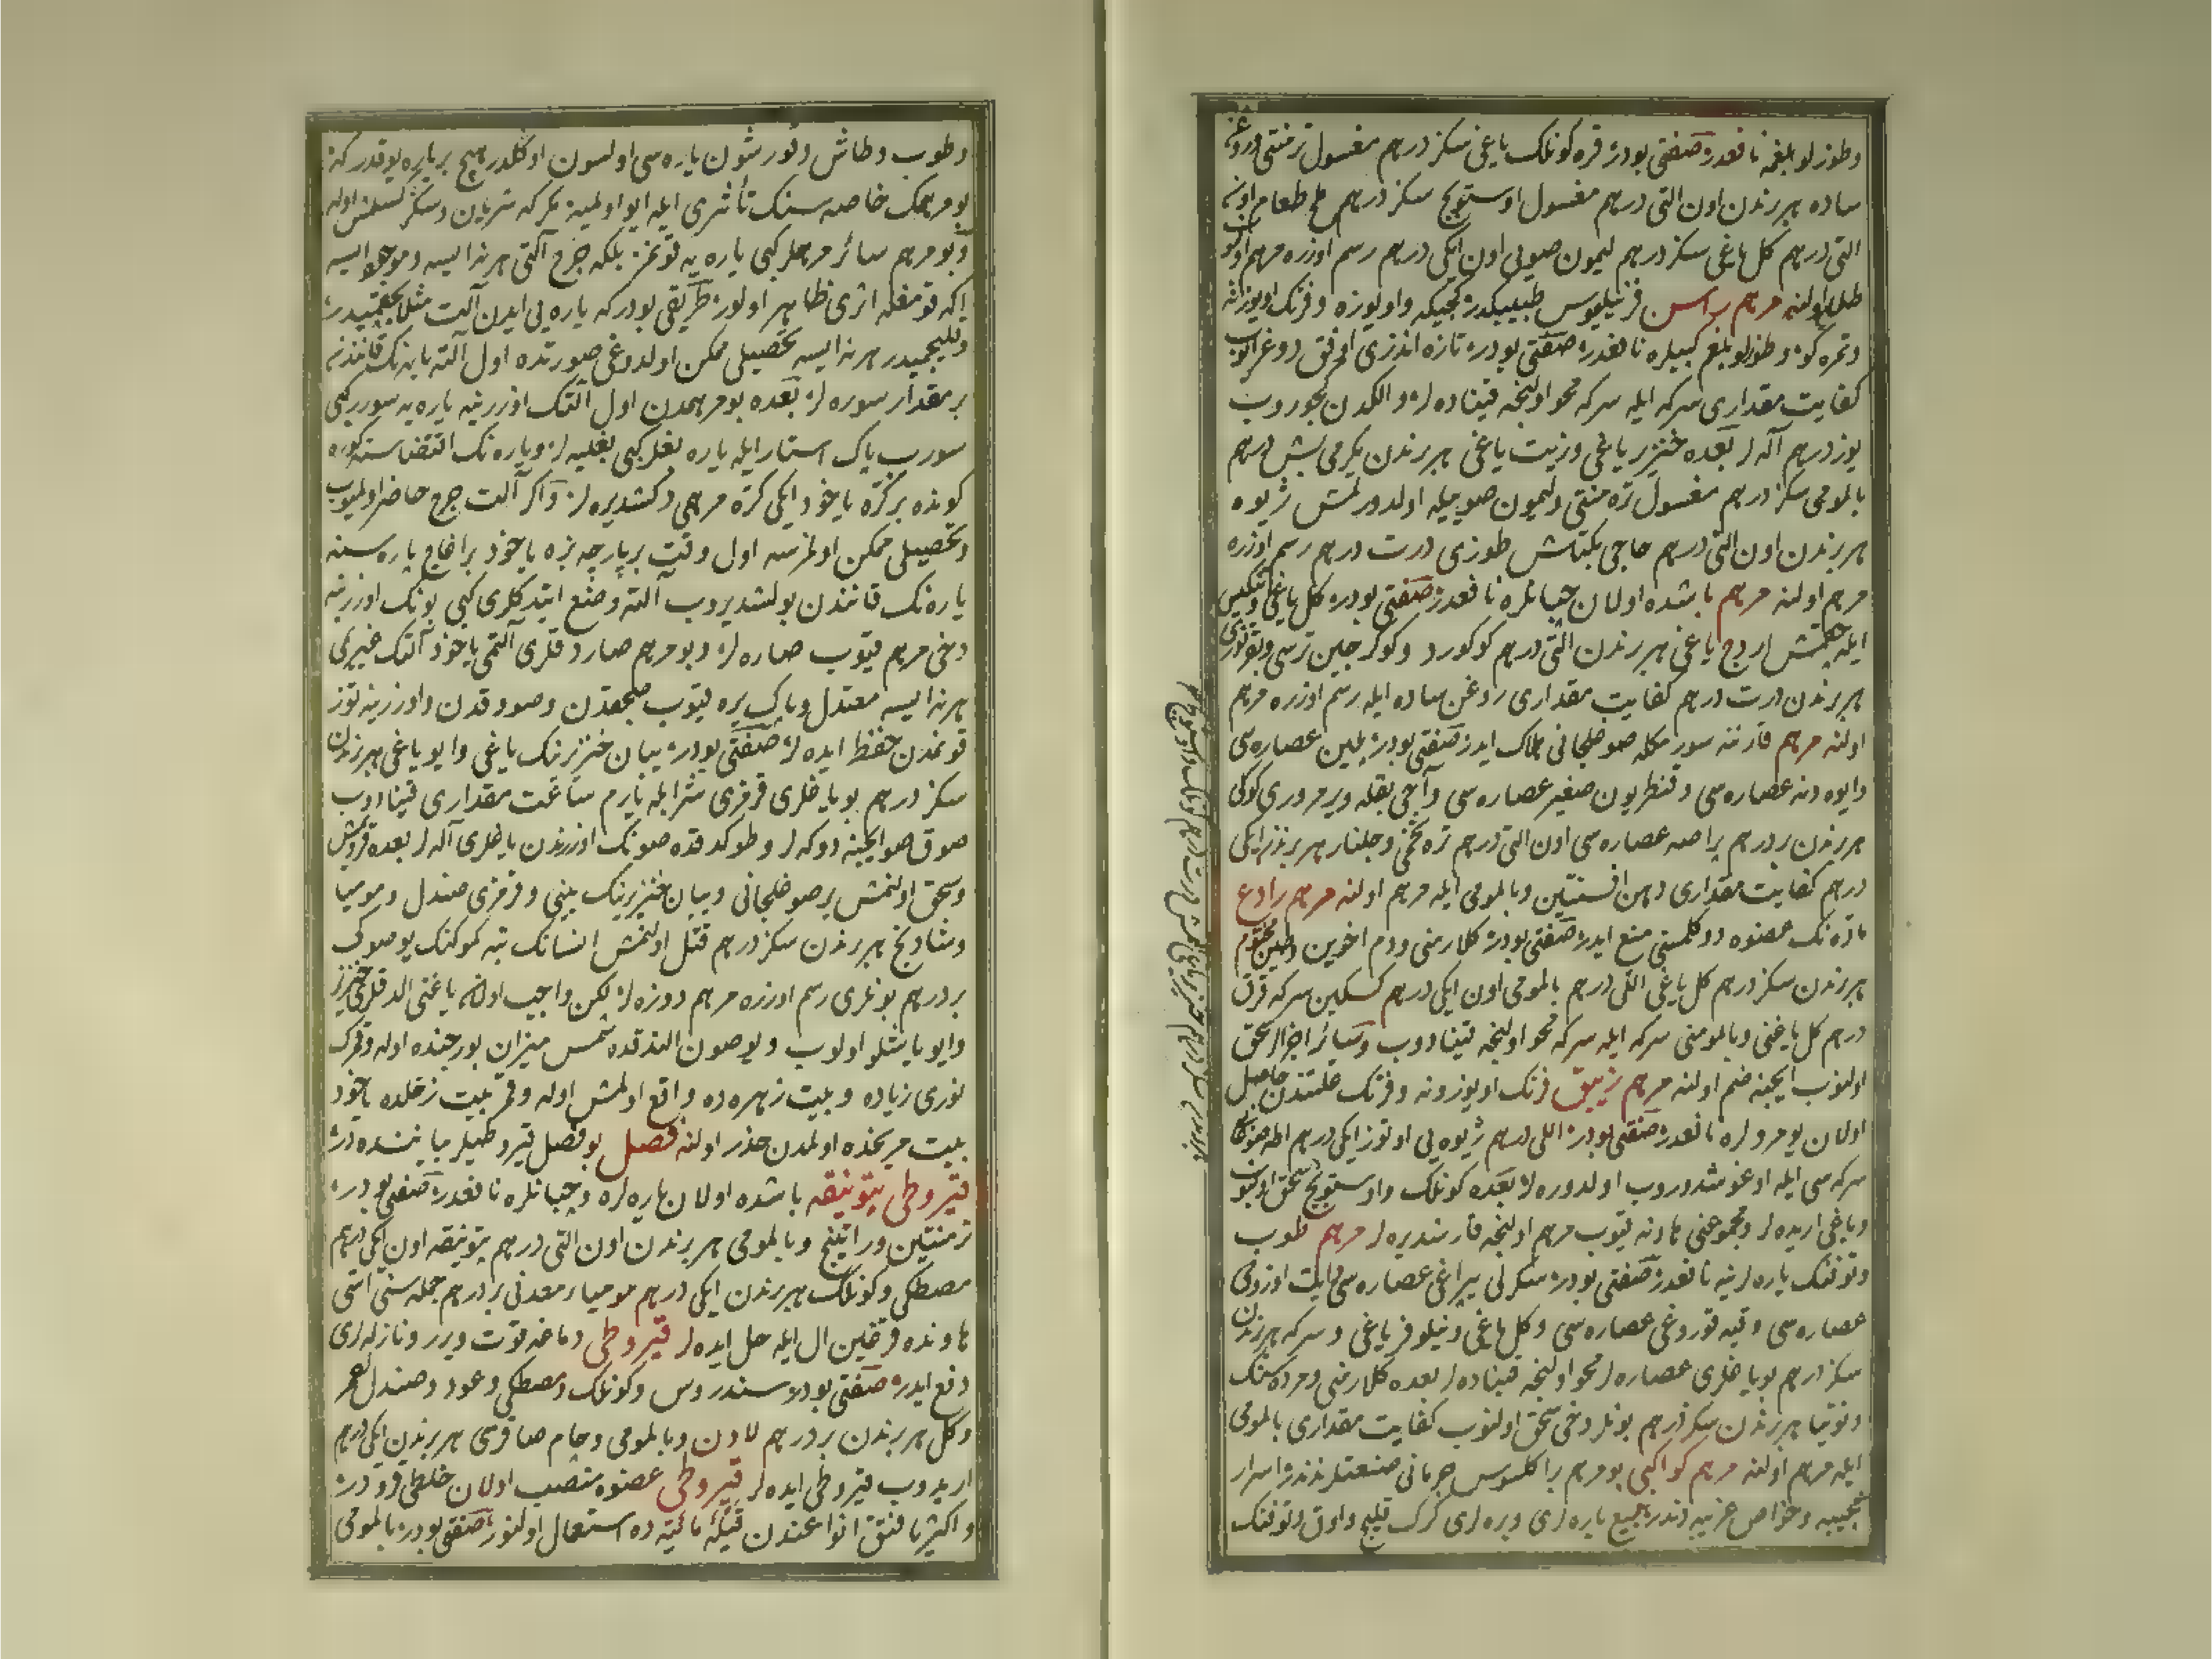 وطوزلو بلغمه نافعدر صفتی بودر قره کونلک یاغی سکز درهم مغسول ترمنتی و روغن
ساده هر برندن اون التی درهم مغسول اوستوبج سکز درهم ملح طعام اون
التی درهم کل یاغی سکز درهم لیمون صویی اون ایکی درهم رسم اوزره مرهم اولنوب
طلا اولنه مرهم براسس فرنیلیوس طبیبکدر کجیکه واویوزه وفرنک اویوزینه
وتمره کو و طوزلو بلغم کبیلره نافعدر صفتی بودر تازه اندزی اوفق دوغرایوب
کفایت مقداری سرکه ایله سرکه محو اولنجه قیناده لر و الکدن کچوروب
یوز درهم آله لر بعده خنزیر یاغی وزیت یاغی هر برندن یکرمی بش درهم
بالمومی سکز درهم مغسول ترمنتی ولیمون صوییله اولدورلمش ژیوه
هر برندن اون التی درهم حاجی بکتاش طوزی درت درهم رسم اوزره
مرهم اولنه مرهم باشده اولان چبانلره نافعدر صفتی بودر کل یاغی
ایله چقمش اردج یاغی هر برندن التی درهم کوکورد وکوکرجین ترسی
هر برندن درت درهم کفایت مقداری روغن ساده ایله رسم اوزره مرهم
اولنه مرهم قارننه سورمکله صوغلجانی هلاک ایدر صفتی بودر پلین عصاره سی
وایوه دنه عصاره سی و قنطریون صغیر عصاره سی وآجی بقله ویرمروری کوکی
هر برندن بر درهم پراصه عصاره سی اون التی درهم تره تخمی وجلنار هر برندن ایکی
درهم کفایت مقداری دهن افسنتین وبالمومی ایله مرهم اولنه مرهم رادع
ماده نک عضوه دوکلمسنی منع ایدر صفتی بودر کلارمنی ودم اخوین وطین مختوم
هر برندن سکز درهم کل یاغی اللی درهم بالمومی اون ایکی درهم کسکین سرکه قرق
درهم کل یاغنی وبالمومنی سرکه ایله سرکه محو اولنجه قیناددوب وسائر اجزالر سحق
اولنوب ایجنه ضم اولنه مرهم زیبق فرنک اویوزونه وفرنک علتندن حاصل
اولان یومرولره نافعدر صفتی بودر اللی درهم ژیوه یی اوتوز ایکی درهم
سرکه سی ایله اوغوشدوروب اولدوره لر بعده کونلک واوستوبج سحق اولنوب
وباغی اریده لر ومجموعنی هاونه قیوب مرهم اولنجه قارشدیره لر مرهم طوب
وتوفنک یاره لرینه نافعدر صفتی بودر سکرلی یپراغی عصاره سی
عصاره سی وقیه قوروغی عصاره سی وکل یاغی ونیلوفر یاغی وسرکه هر برندن
سکز درهم بو یاغلری عصاره لر محو اولنجه قیناده لر بعده کلارمنی ومرده سنک
وتوتیا هر برندن سکز درهم بونلر دخی سحق اولنوب کفایت مقداری بالمومی
ایله مرهم اولنه مرهم کواکبی بو مرهم براکلسوس جرمانی صنعتلرندندر اسرار
عجیبه وخواص غریبه دندر جمیع یاره لری وبره لری کرک قلیج واوق وتوفنک
وطوب وطاش وقورشون یاره سی اولسون اوکلدر هیچ بر یاره یوقدر که
بو مرهمک خاصه سنک تأثیری ایله ایو اولمیه مکر که شریان وسکر کسلمش اوله
وبو مرهم سائر مرهملر کبی یاره یه قونمز بلکه جرح آلتی هر نه ایسه
اکه قومغله اثری ظاهر اولور طریقی بودر که یاره یی ایدن آلت مثلا بچقمیدر
وقلیجمیدر هر نه ایسه تحصیلی ممکن اولدوغی صورتده اول آلته یاره نک قانندن
بر مقدار سوره لر بعده بو مرهمدن اول آلتک اوزرینه یاره یه سورر کبی
سوروب پاک استار ایله یاره بغلر کبی بغلیه لر ویاره نک اقتضاسنه کوره
کونده بر کره یاخود ایکی کره مرهمی دکشدیره لر واکر آلت جرح حاضر اولمیوب
وتحصیلی ممکن اولمزسه اول وقت بر پارچه بزه یاخود بر اغاج پاره سنه
یاره نک قانندن بولشدیروب آلته وضع ایتدکلری کبی بونک اوزرینه
دخی مرهم قیوب صاره لر وبو مرهم صاردقلری آلتمی یاخود آلتک غیریمی
هر نه ایسه معتدل وپاک یره قیوب صیجقدن وصووقدن واوزرینه توز
قونمدن حفظ ایده لر صفتی بودر یبان خنزیرنک یاغی وایو یاغی هر برندن
سکز درهم بو یاغلری قرمزی شراب ایله یارم ساعت مقداری قیناددوب
صوق صو ایچینه دوکه لر وطوکدقده صونک اوزرندن یاغلری آله لر بعده
وسحق اولنمش یر صوغلجانی ویبان خنزیرینک بینی وقرمزی صندل ومومیا
وشادنج هر برندن سکز درهم قتل اولنمش انسانک تپه کموکنک یوصونی
بر درهم بونلری رسم اوزره مرهم دوزه لر لکن واجب اولان یاغنی الدقلری خنزیر
وایو یاشلو اولوب ویوصون الندقده شمس میزان بورجنده اوله وقمرک
نوری زیاده وبیت زهره ده واقع اولمش اوله وقمر بیت زحلده یاخود
بیت مریخده اولمدن حذر اولنه فصل بو فصل قیروطیلر بیاننده در
قیروطی بیتونیقه باشده اولان یاره لره وچبانلره نافعدر صفتی بودر
ترمنتین وراتینج وبالمومی هر برندن اون التی درهم بیتونیقه اون ایکی درهم
مصطکی وکونلک هر برندن ایکی درهم مومیا معدنی بر درهم جمله سنی
هاونده ایله حل ایده لر قیروطی دماغه قوت ویرر ونازله لری
دفع ایدر صفتی بودر سندروس وکونلک ومصطکی وعود وصندل
وکل هر برندن بر درهم لادن وبالمومی وچام صاقزی هر برندن ایکی درهم
اریدوب قیروطی ایده لر قیروطی عضوه منصب اولان خلطی
واکثریا فتق انواعندن قیله مائیه ده استعمال اولنور صفتی بودر بالمومی